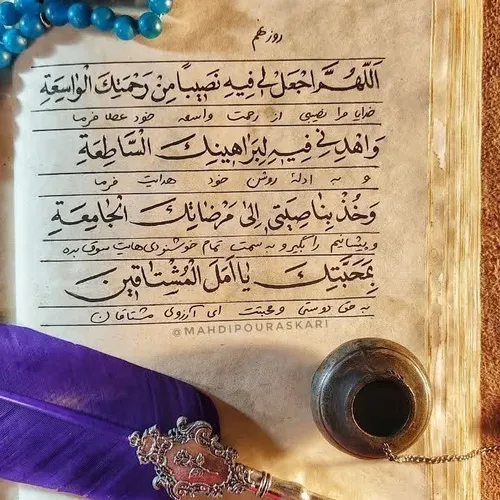 روز نهم
اَللّهُمَّ اجْعَلْ لی فیهِ نَصیباً مِنْ رَحْمَتِكَ الْواسِعَةِ
خدایا مرا نصیبی از رحمت واسعه خود عطا فرما
وَاهْدِنی فیهِ لِبَراهینِكَ السّاطِعَةِ
و به ادلهٔ روشن خود هدایت فرما
وَخُذْ بِناصِیَتی اِلی مَرْضاتِكَ الْجامِعَةِ
و پیشانیم را بگیر و به سمت تمام خوشنودی‌هایت سوق بده
بِمَحَبَّتِكَ یا اَمَلَ الْمُشْتاقینَ
به حق دوستی و محبتت ای آرزوی مشتاقان
@MAHDIPOURASKARI